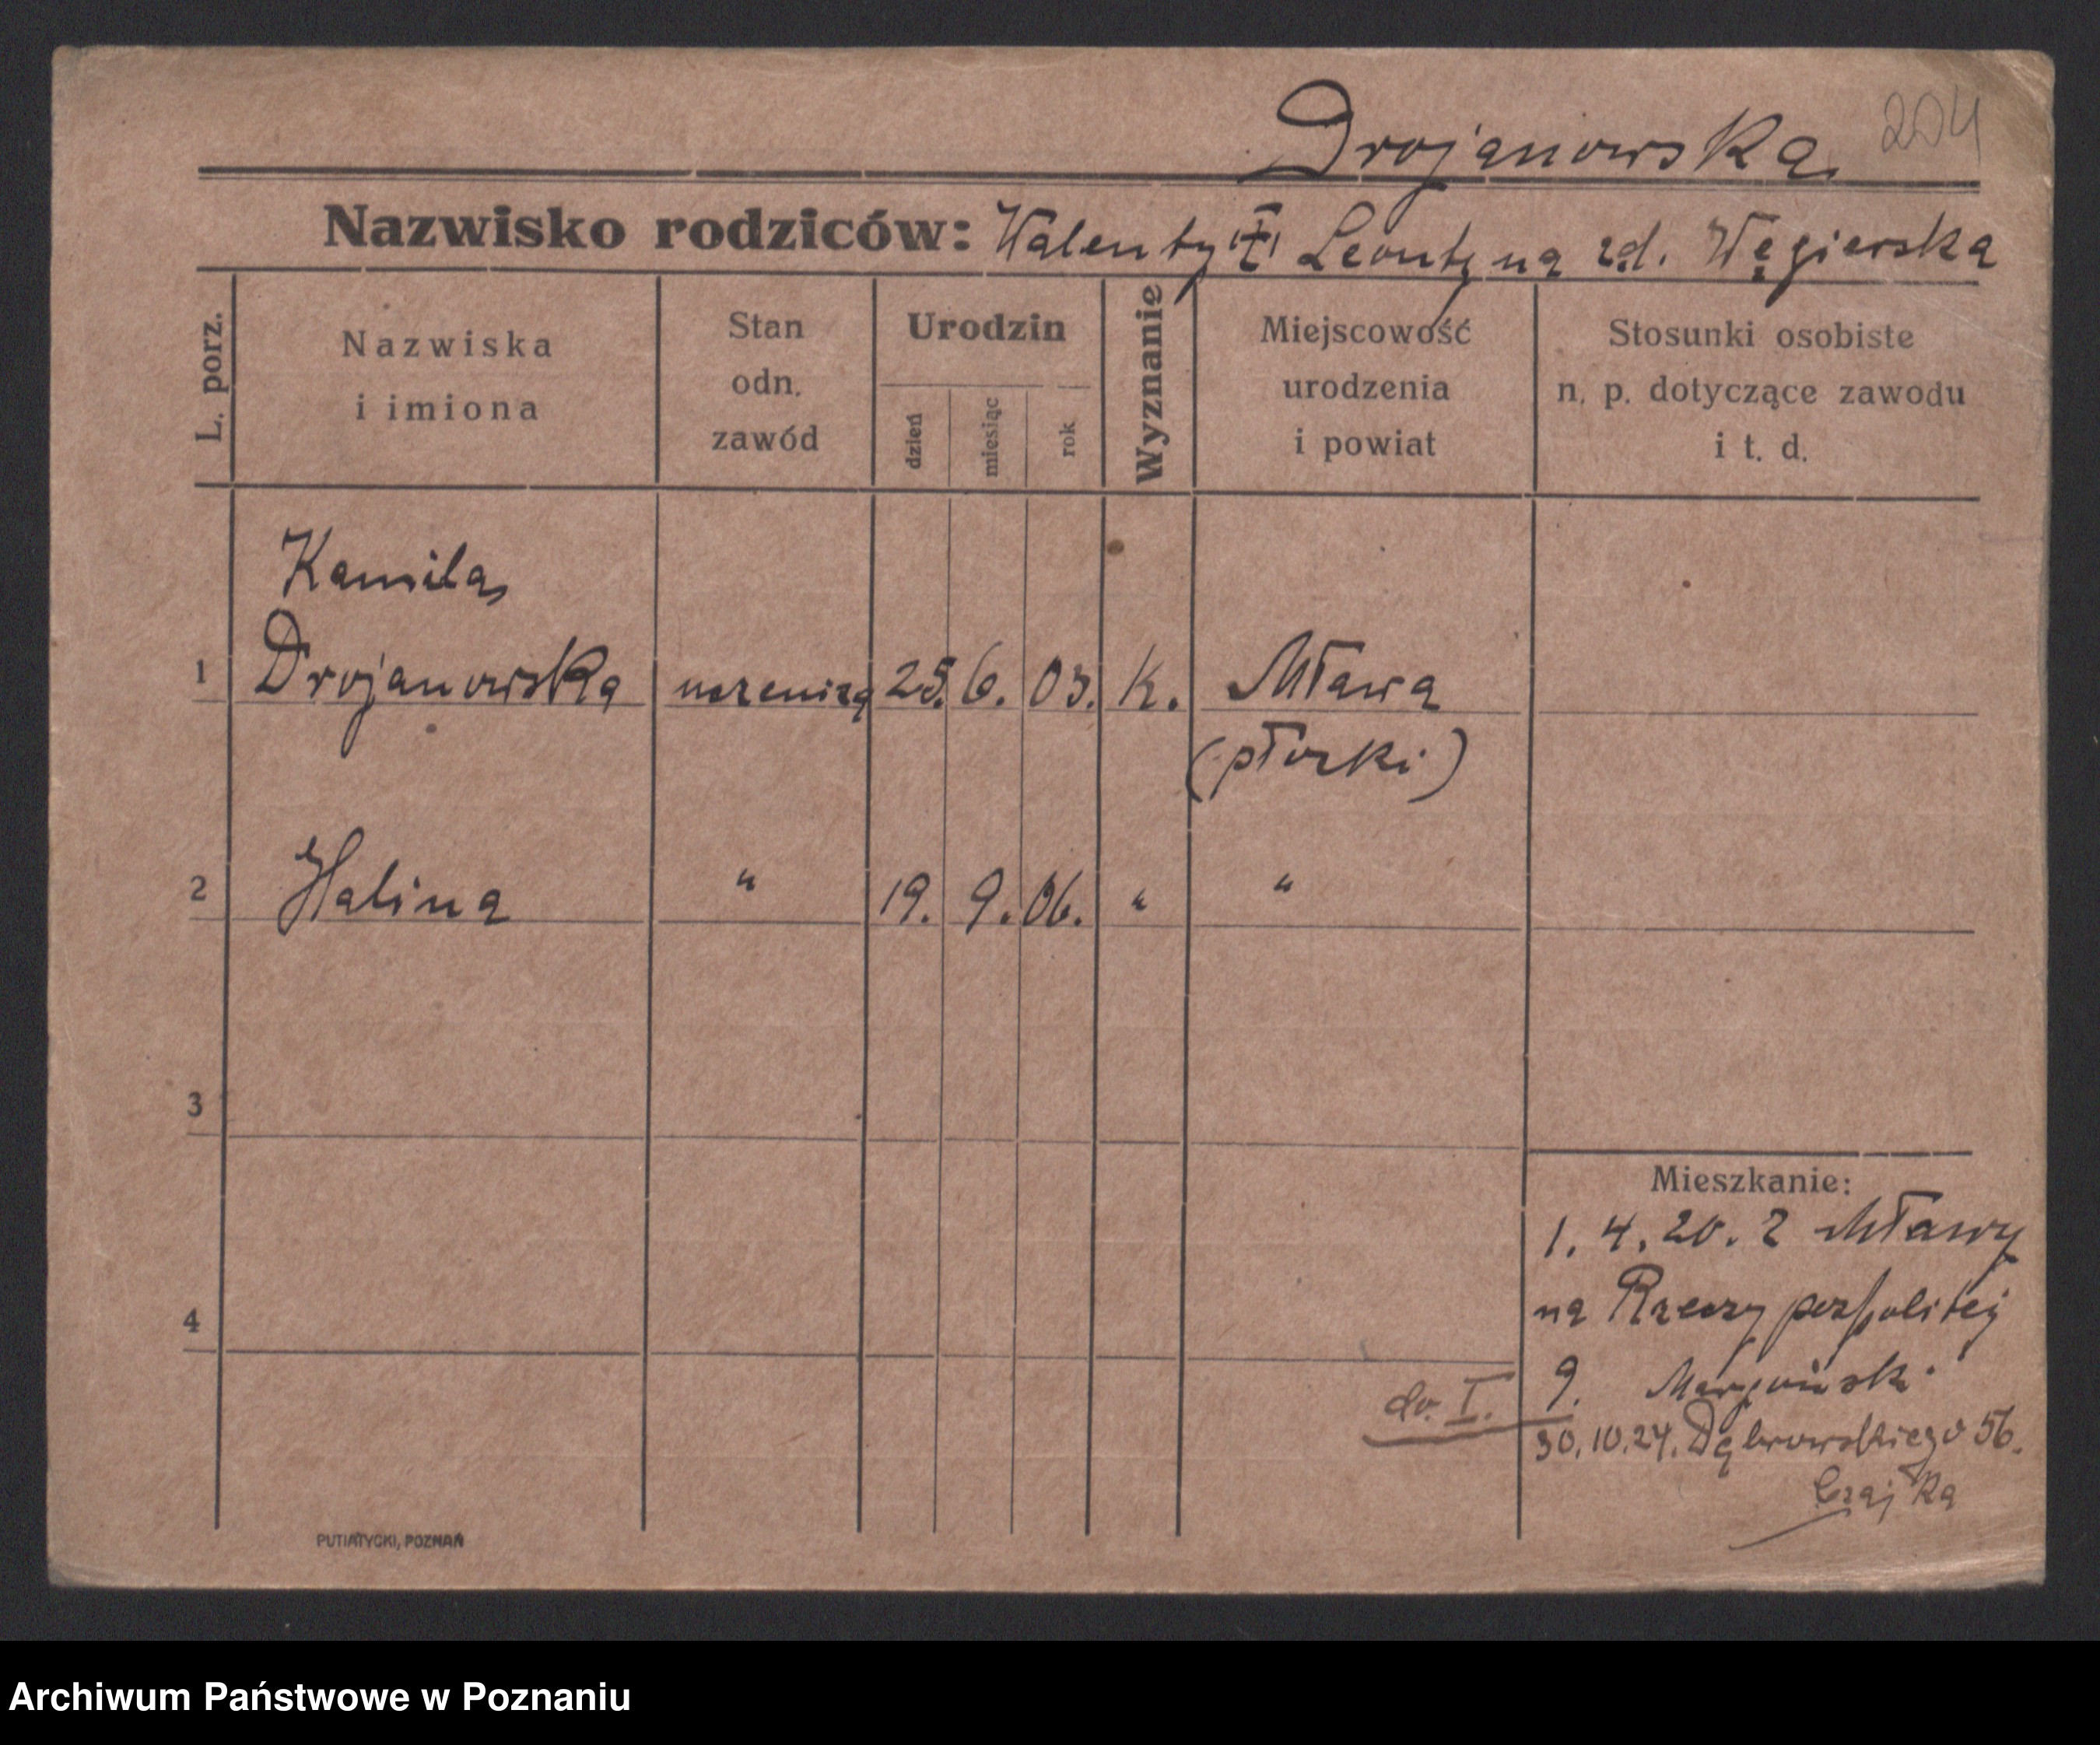 Drojanowska 204
Nazwisko rodziców: Walenty i Leontyna zd. Węgierska
L. porz.
Nazwiska
i imiona
Stan
odn.
zawód
Urodzin
dzień
miesiąc
rok
Wyznanie
Miejscowość
urodzenia
i powiat
Stosunki osobiste
n. p. dotyczące zawodu
i t. d.
Kamila
1 Drojanowska uczenica 25. 6. 03. k. Mława
(płocki)
2 Halina " 19. 9. 06. " "
3
4
Mieszkanie:
1. 4. 20. z Mławy
na Rzeczypospolitej
9.
do I.
30.10.24. Dąbrowskiego 56.
Czajka
PUTIATYCKI, POZNAŃ
Archiwum Państwowe w Poznaniu